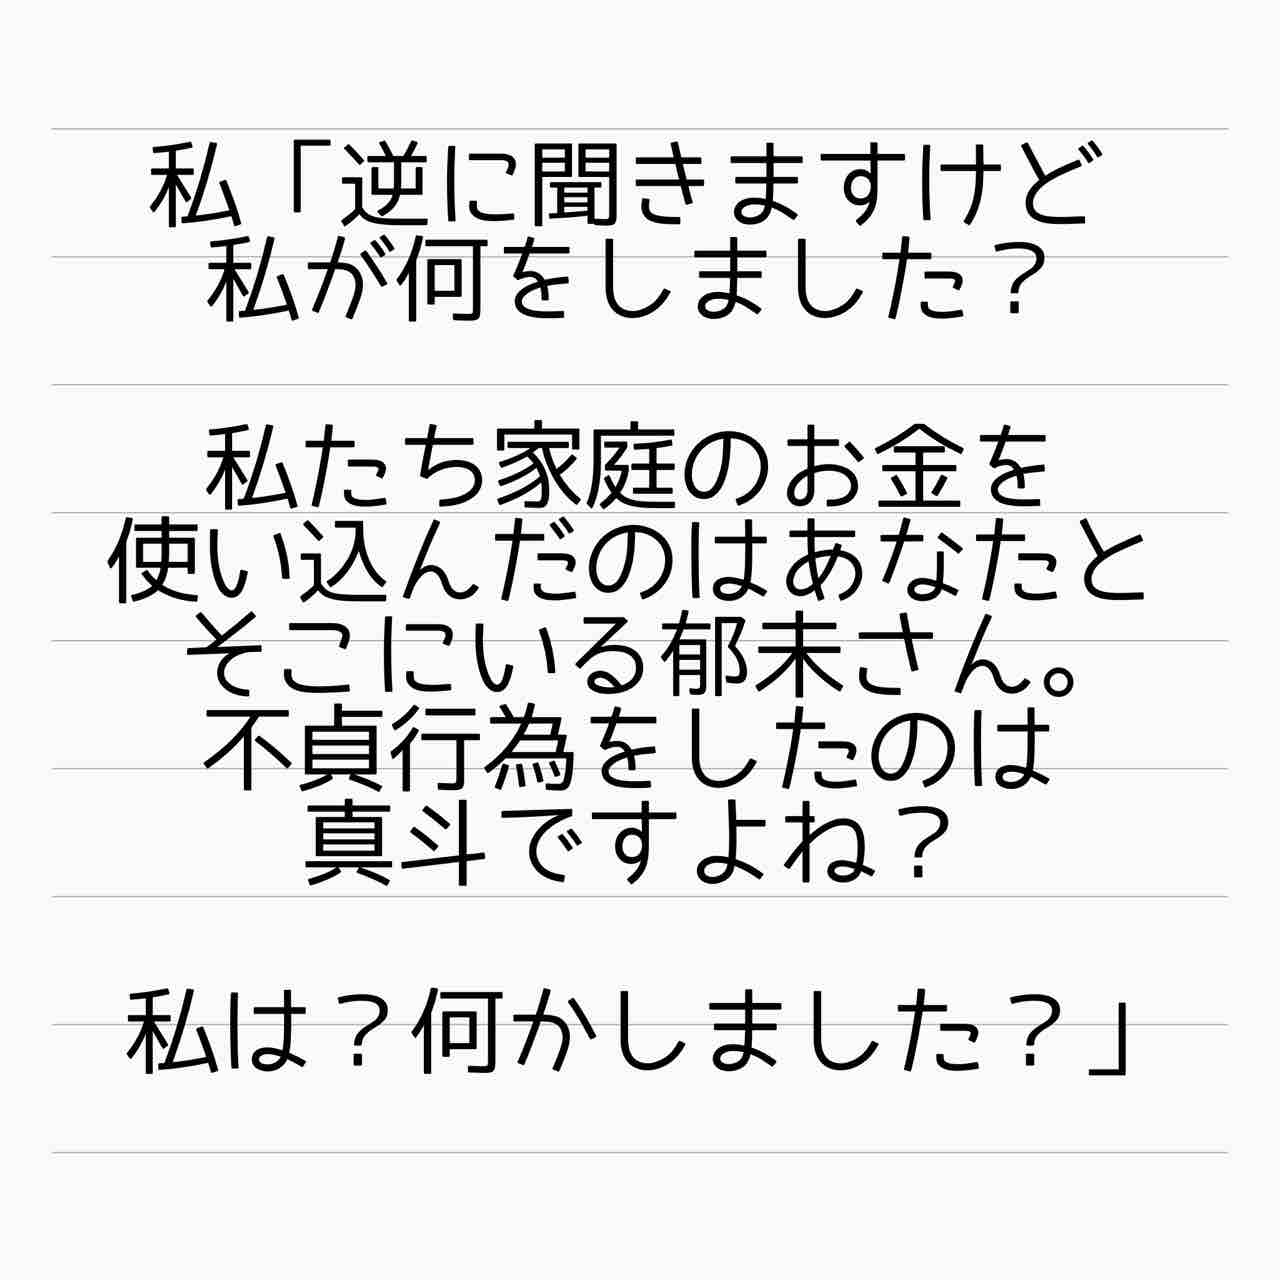 私「逆に聞きますけど
私が何をしました？
私たち家庭のお金を
使い込んだのはあなたと
そこにいる郁未さん。
不貞行為をしたのは
真斗ですよね？
私は？何かしました？」